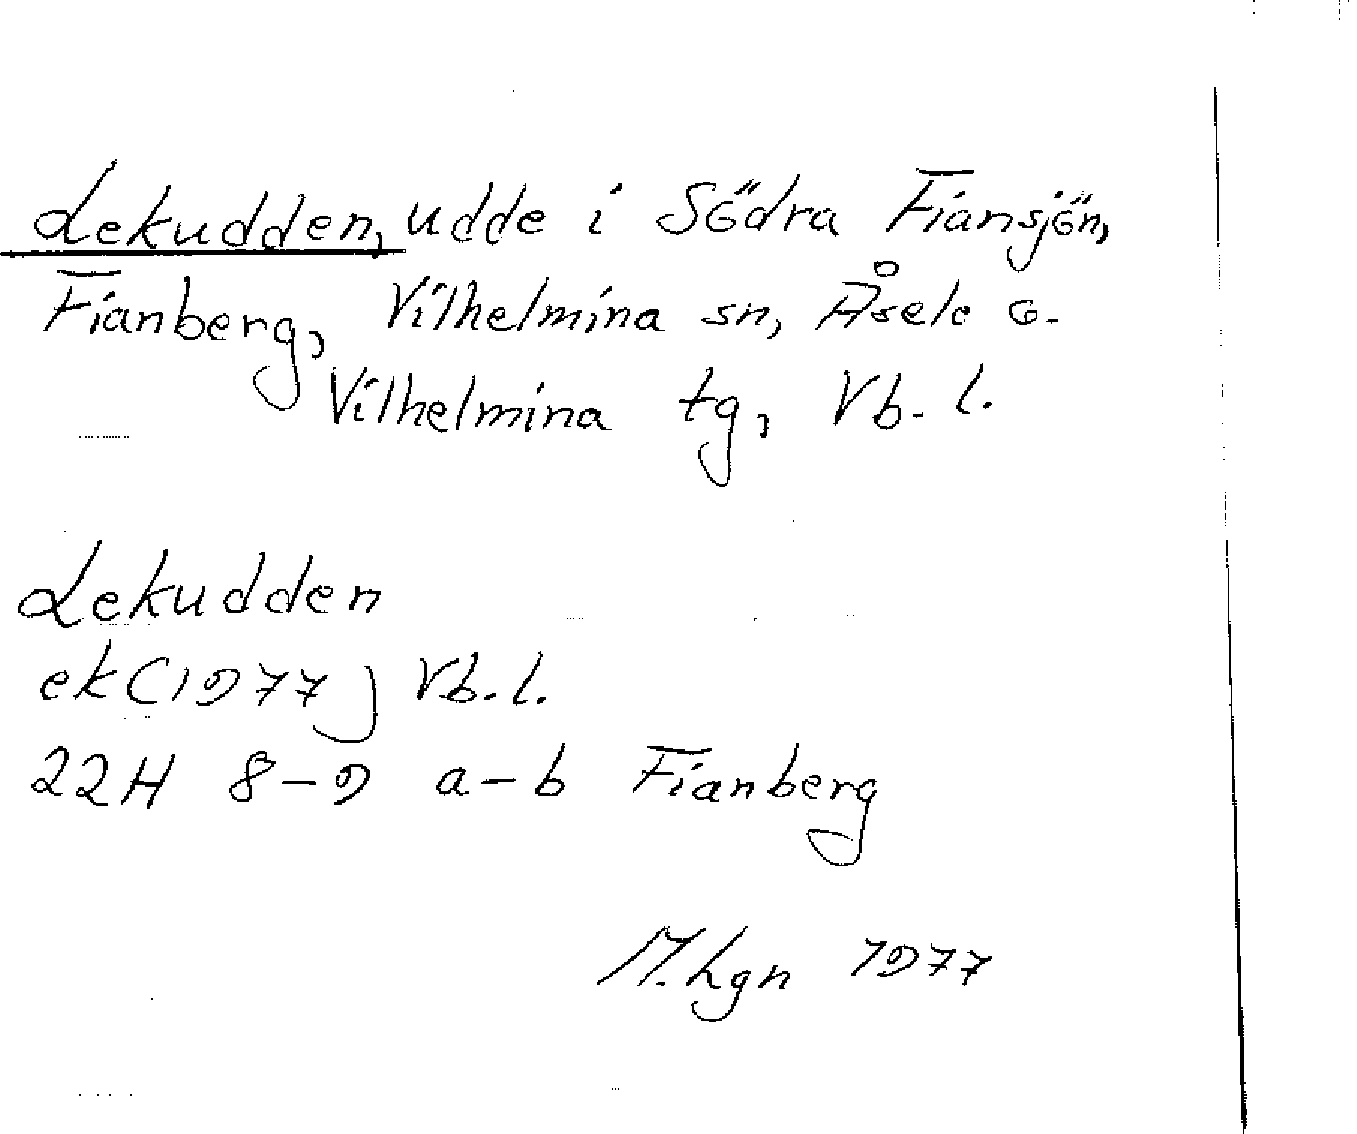 Lekudden, udde i Södra Fiansjön,
Fianberg, Vilhelmina sn, Åsele o.
Vilhelmina tg, Vb. l.
Lekudden
ek (1977) Vb. l.
22H 8-9 a-b Fianberg
M. Lgn 1977